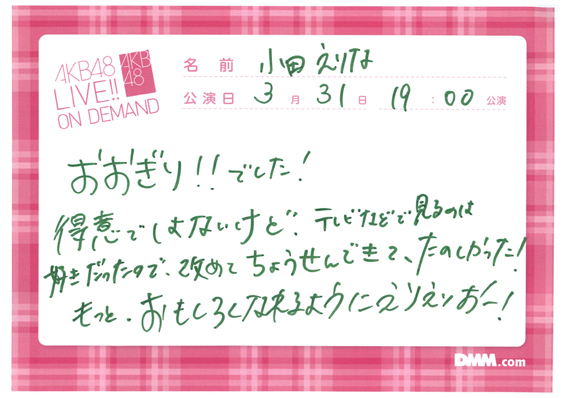 AKB48
LIVE!!
ON DEMAND
AKB
48
名前 小田えりな
公演日 3月31日 19:00公演
おおぎり!!でした!
得意ではないけど、テレビなどで見るのは
好きだったので、改めてちょうせんできて、たのしかった!
もっと、おもしろくなれるようにえりえりおー!
DMM.com